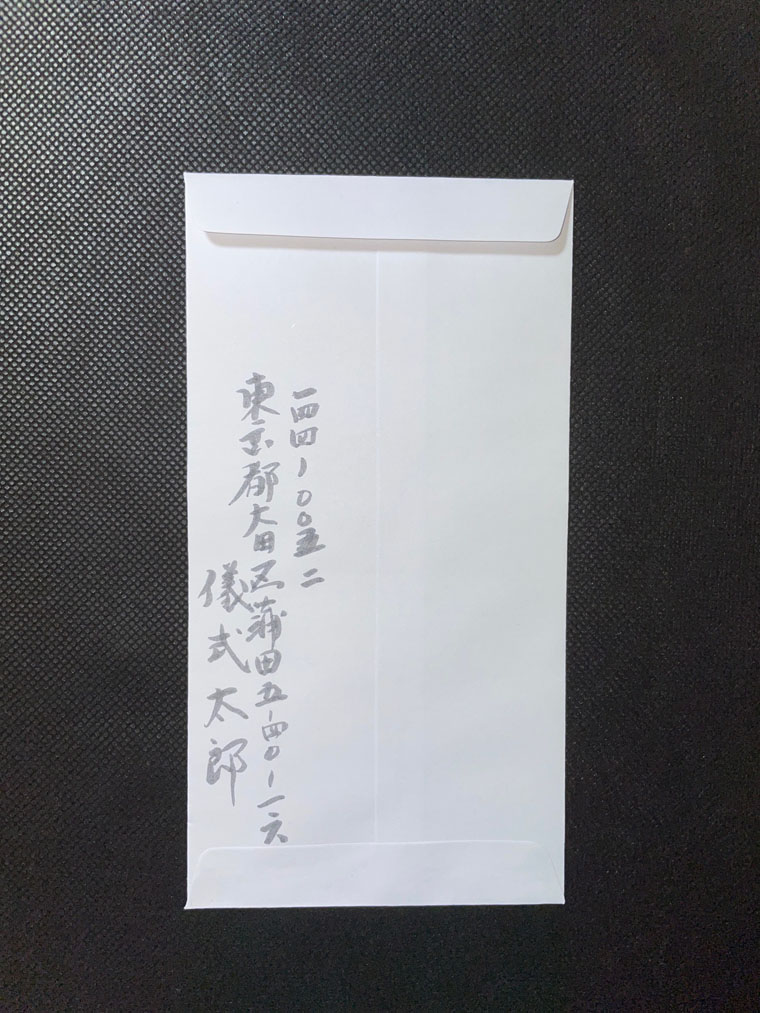 一四四-〇〇五二
東京都大田区蒲田五-四〇-一六
儀式太郎